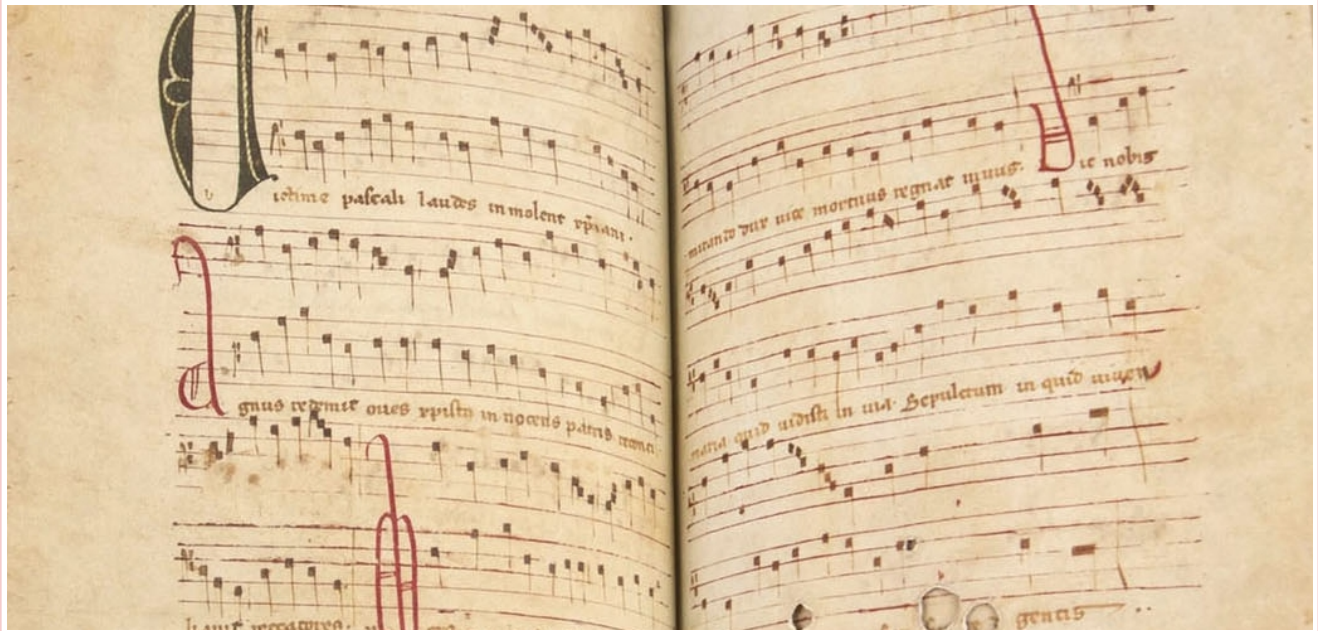 Victime pascali laudes inmolent xp̄iani.
Agnus redemit oves xpistus innocens patris reconci
liavit peccatores. M
mirando dux vite mortuus regnat vivus. Dic nobis
maria quid vidisti in via. Sepulcrum xp̄i viven
gentis